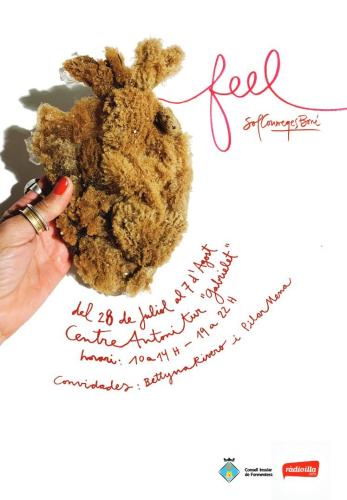 feel
Sof Courreges Boné
del 28 de Juliol al 7 d'Agost
Centre Antoni Tur "Gabrielet"
horari: 10 a 14 H - 19 a 22 H
Convidades: Bettyna Rivero i Pilar Mena
Consell Insular
de Formentera
ràdioilla